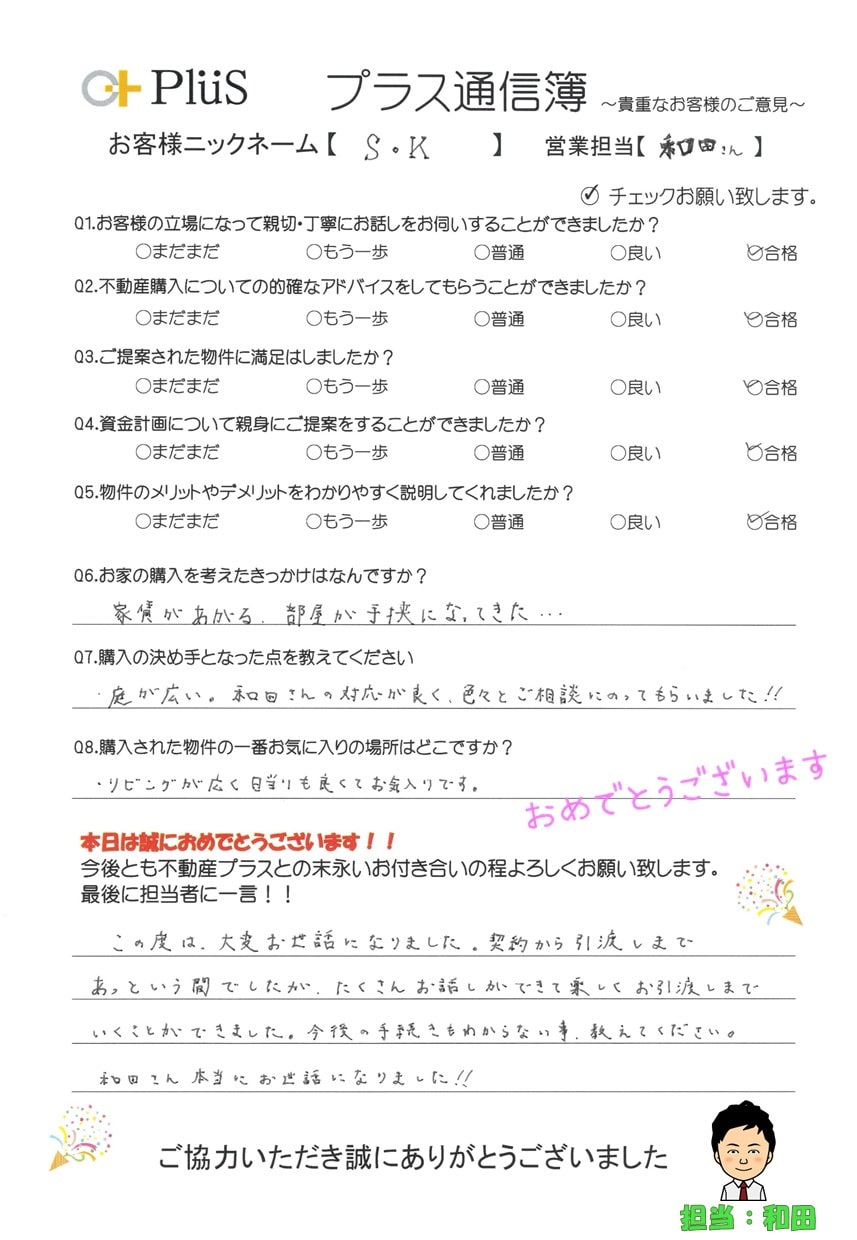 PlüS プラス通信簿 ～貴重なお客様のご意見～
お客様ニックネーム【 S.K 】 営業担当【 和田さん 】
チェックお願い致します。
Q1.お客様の立場になって親切・丁寧にお話しをお伺いすることができましたか？
○まだまだ ○もう一歩 ○普通 ○良い ○合格
Q2.不動産購入についての的確なアドバイスをしてもらうことができましたか？
○まだまだ ○もう一歩 ○普通 ○良い ○合格
Q3.ご提案された物件に満足はしましたか？
○まだまだ ○もう一歩 ○普通 ○良い ○合格
Q4.資金計画について親身にご提案をすることができましたか？
○まだまだ ○もう一歩 ○普通 ○良い ○合格
Q5.物件のメリットやデメリットをわかりやすく説明してくれましたか？
○まだまだ ○もう一歩 ○普通 ○良い ○合格
Q6.お家の購入を考えたきっかけはなんですか？
家賃があがる、部屋が手狭になってきた…
Q7.購入の決め手となった点を教えてください
・庭が広い。和田さんの対応が良く、色々とご相談にのってもらいました!!
Q8.購入された物件の一番お気に入りの場所はどこですか？
・リビングが広く日当りも良くてお気入りです。
おめでとうございます
本日は誠におめでとうございます！！
今後とも不動産プラスとの末永いお付き合いの程よろしくお願い致します。
最後に担当者に一言！！
この度は、大変お世話になりました。契約から引渡しまで
あっという間でしたが、たくさんお話しができて楽しくお引渡しまで
いくことができました。今後の手続きもわからない事、教えてください。
和田さん本当にお世話になりました!!
ご協力いただき誠にありがとうございました
担当：和田